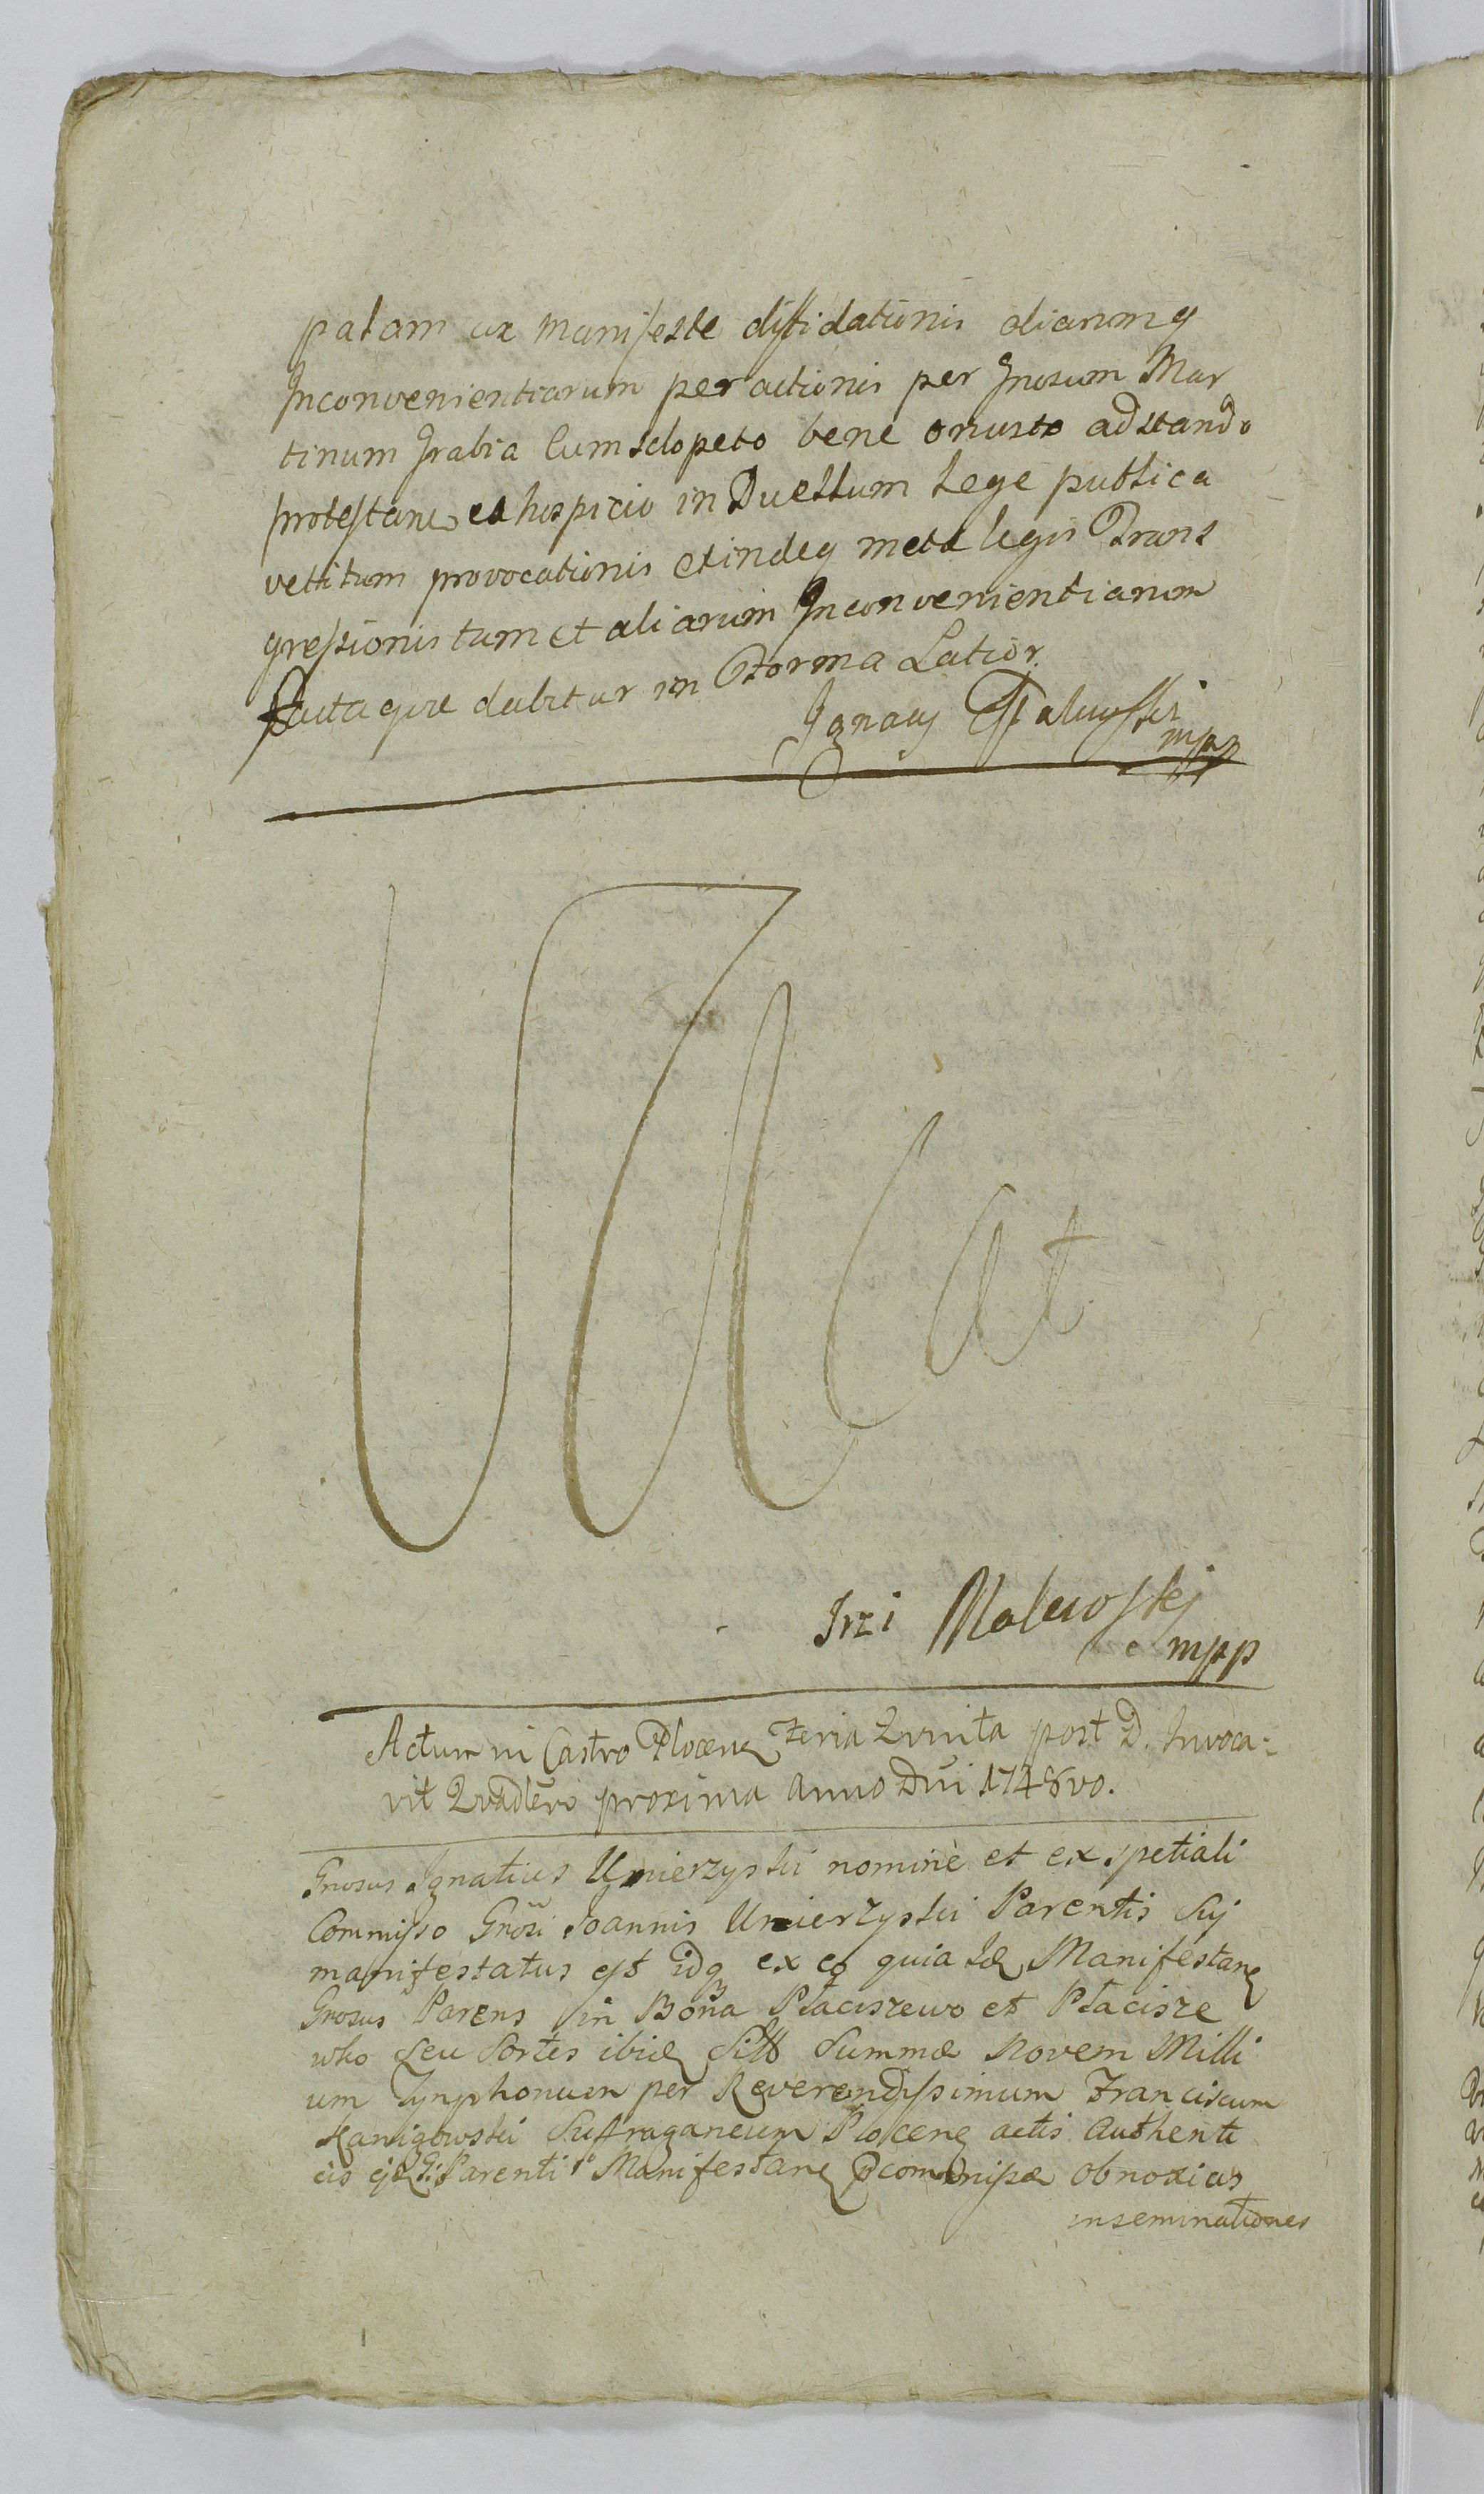 palam ac manifeste diffidationis aliarumq
Inconvenientiarum per actionis per Gnosum Mar
tinum Grabia Cum sclopeto bene onusto adstando
protestane ex hospicio in Duellum Lege publica
vettitum provocationis exindeq metae legis Trans
gressionis tum et aliarum Inconvenientiarum
facta que dabitur in Forma Latior.
Ignacy mpp
Vacat
Irzi Malewskj
mpp
Actum in Castro Plocen Feria Quinta post D. Invoca-
vit Quadlem proxima Anno Dni 1748vo.
Gnosus Ignatius Umierzyski nomine et ex spetiali
Commisso Gnosi Joannis Umierzyski Parentis Suj
manifestatus est idq ex eo quia Id Manifestan
Gnosus Parens in Bona Płaciszewo et Płacisze
who Seu Sortes ibid Sitt Summæ Novem Milli
um Tynphonum per Reverendissimum Franciscum
Kanigowski Suffraganeum Plocen actis Authenti
cis Parenti Manifestan obnoxias
inseminationes